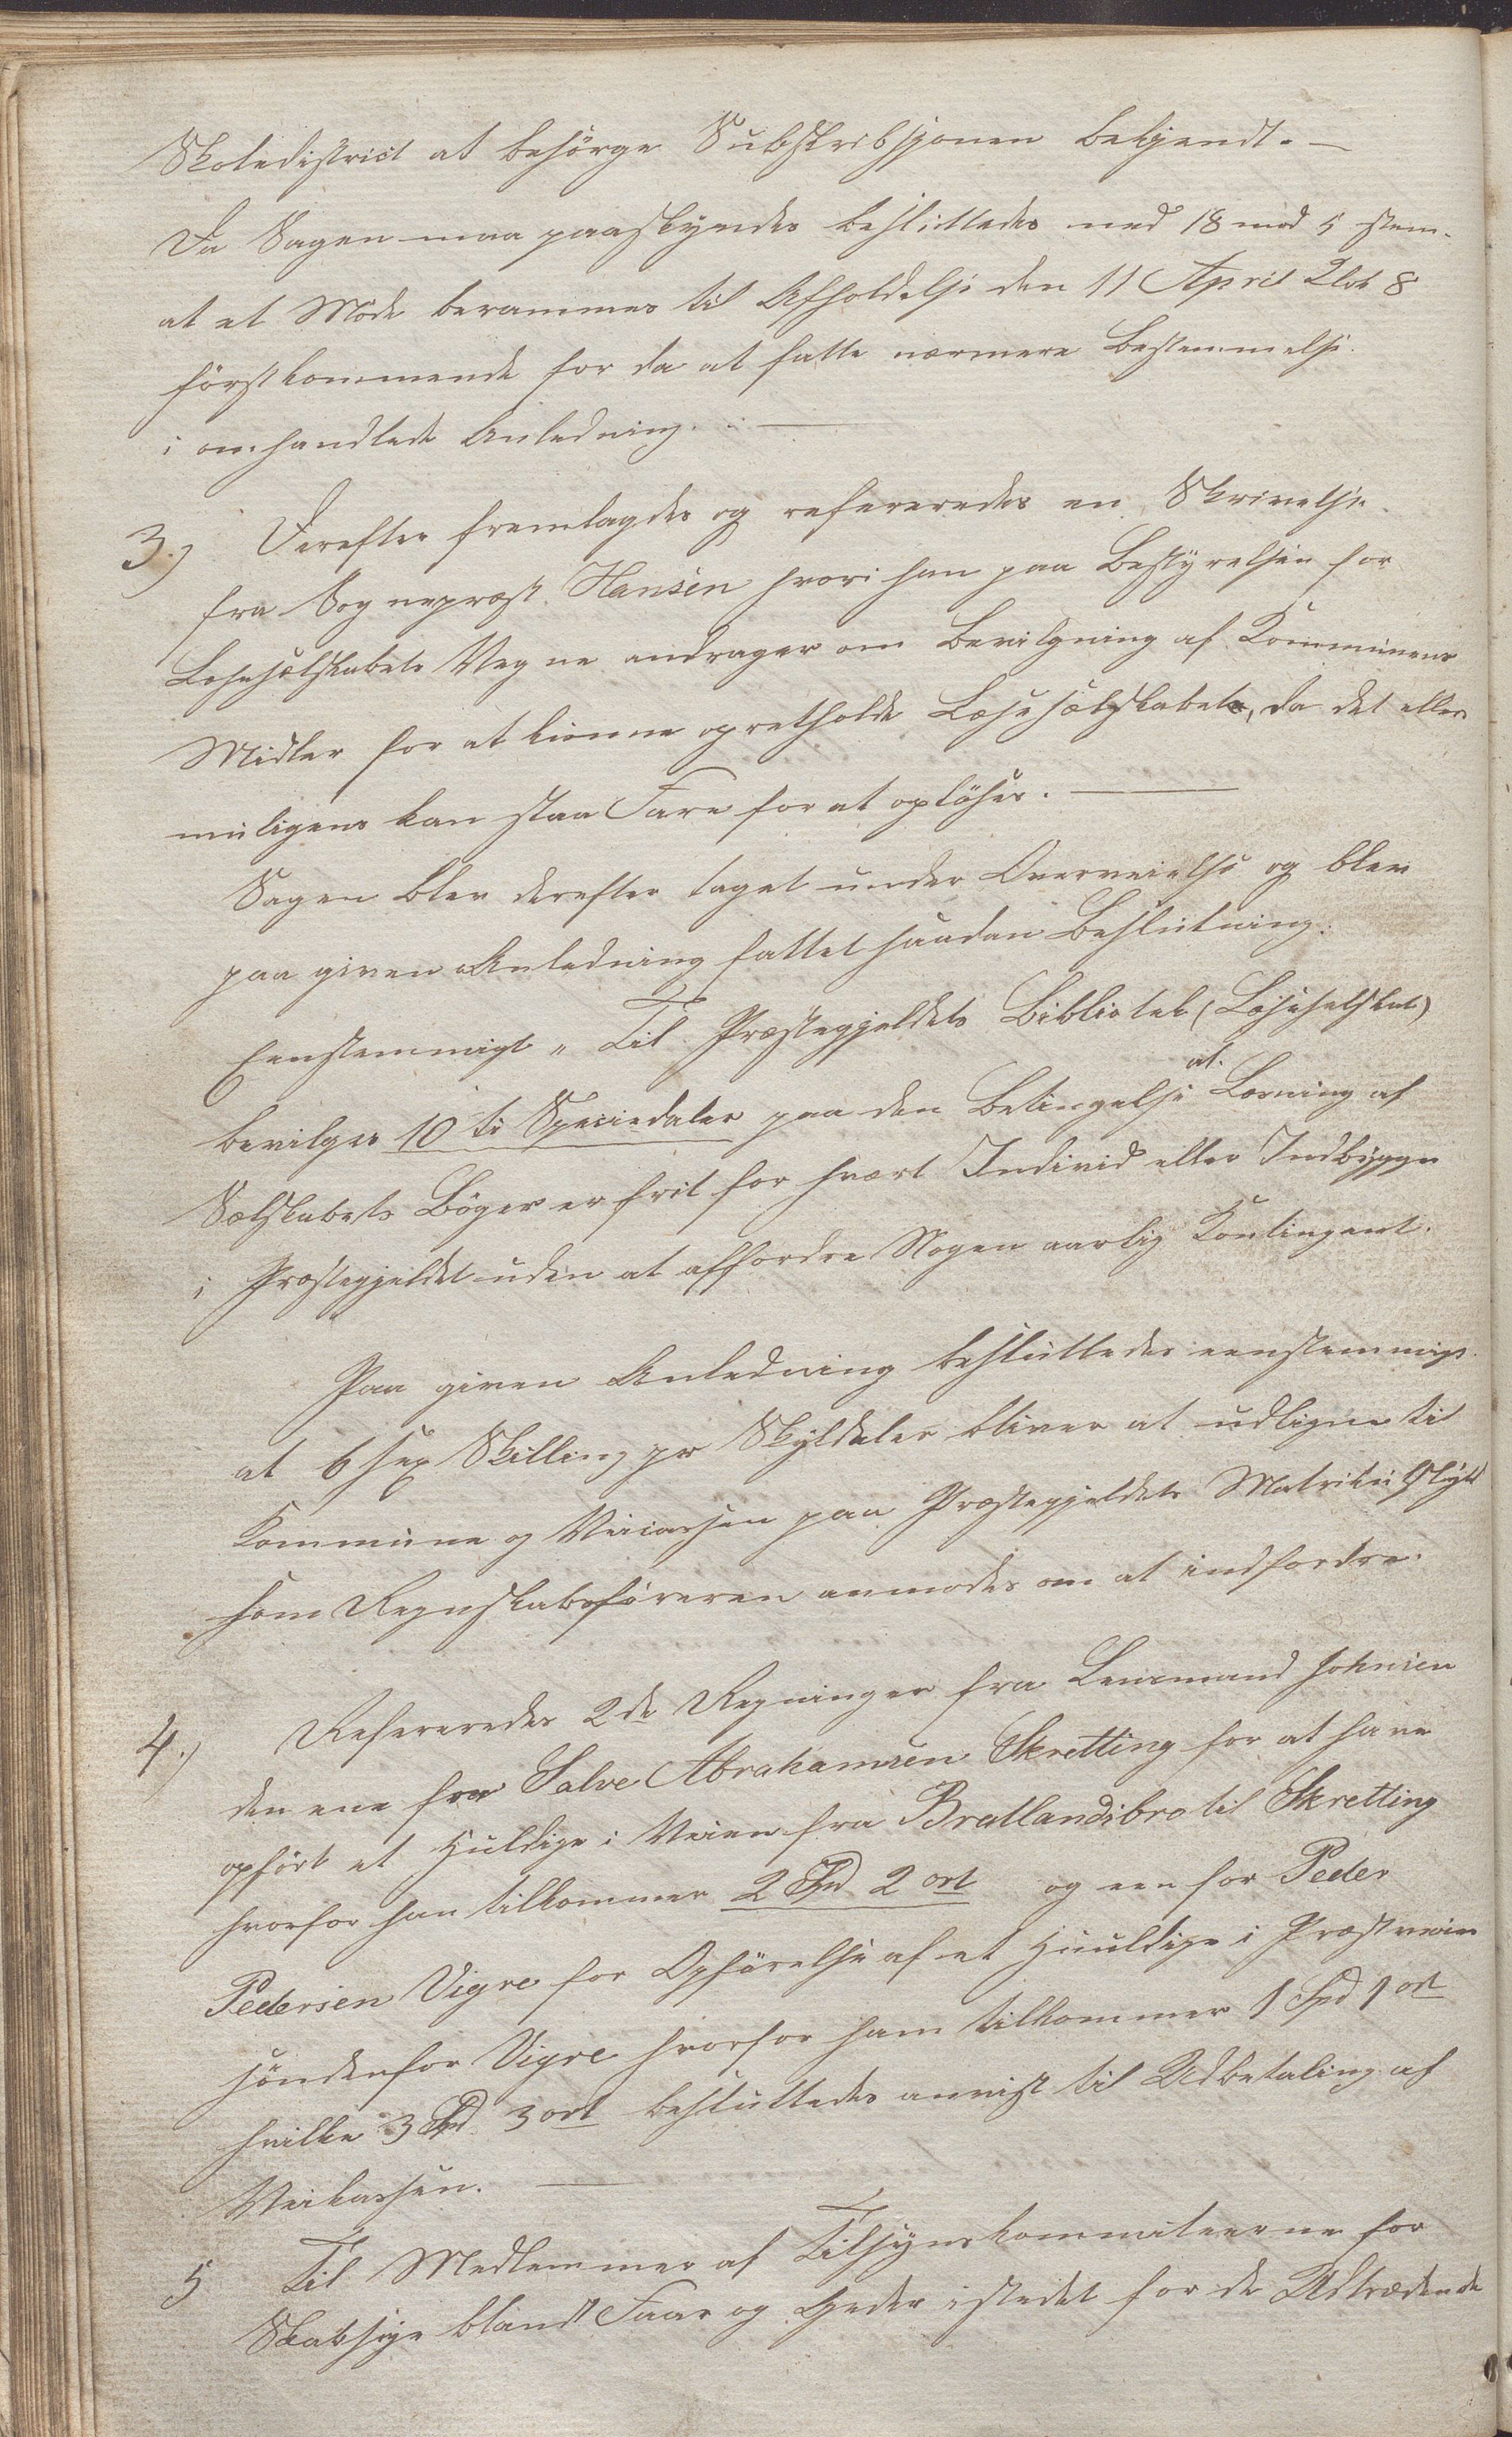 Skoledistrict at besörge Subskribsjonen bekjendt. —
Da Sagen maa paaskyndes besluttedes med 18 mod 5 stem.
at et Möde berammes til Afholdelse den 11 April Klok 8
förstkommende for da at fatte nærmere Bestemmelse
i omhandlede Anledning. —
3.) Derefter fremlagdes og refereredes en Skrivelse
fra Sognepræst Hansen hvori han paa Bestyrelsen for
Læseselskabets Vegne andrager om Bevilgning af Kommunens
Midler for at kunne opretholde Læseselskabet, da det ellers
muligens kan staa Fare for at oplöses. —
Sagen blev derefter taget under Overveielse og blev
paa given Anledning fattet saadan Beslutning:
Eenstemmigt „ Til Præstegjeldets Bibliotek (Læseselskab)
bevilges 10 ti Speciedaler paa den Betingelse at Læsning af
Selskabets Böger er frit for hvert Individ eller Indbygger
i Præstegjeldet uden at affordre Nogen aarlig Kontingent.
Paa given Anledning besluttedes eenstemmigt
at 6 sex Skilling pr Skylddaler bliver at udligne til
Kommune og Veicassen paa Præstegjeldets Matrikulskyld
som Regnskabsföreren anmodes om at indfordre.
4.) Refereredes 2de Regninger fra Lensmand Johnsen
den ene fra Salve Abrahamsen Skretting for at have
opfört et Huldige i Veien fra Bratlandsbro til Skretting
hvorfor han tilkommer 2 Spd 2 ort og een for Peder
Pedersen Vigre for Opförelse af et Huuldige i Præstveien
söndenfor Vigre hvorfor ham tilkommer 1 Spd 1 ort
hvilke 3 Spd 3 ort besluttedes anvist til Udbetaling af
Veikassen. —
5 Til Medlemmer af Tilsynskommiteerne for
Skabsyge blandt Faar og Geder istedet for de Udtrædende